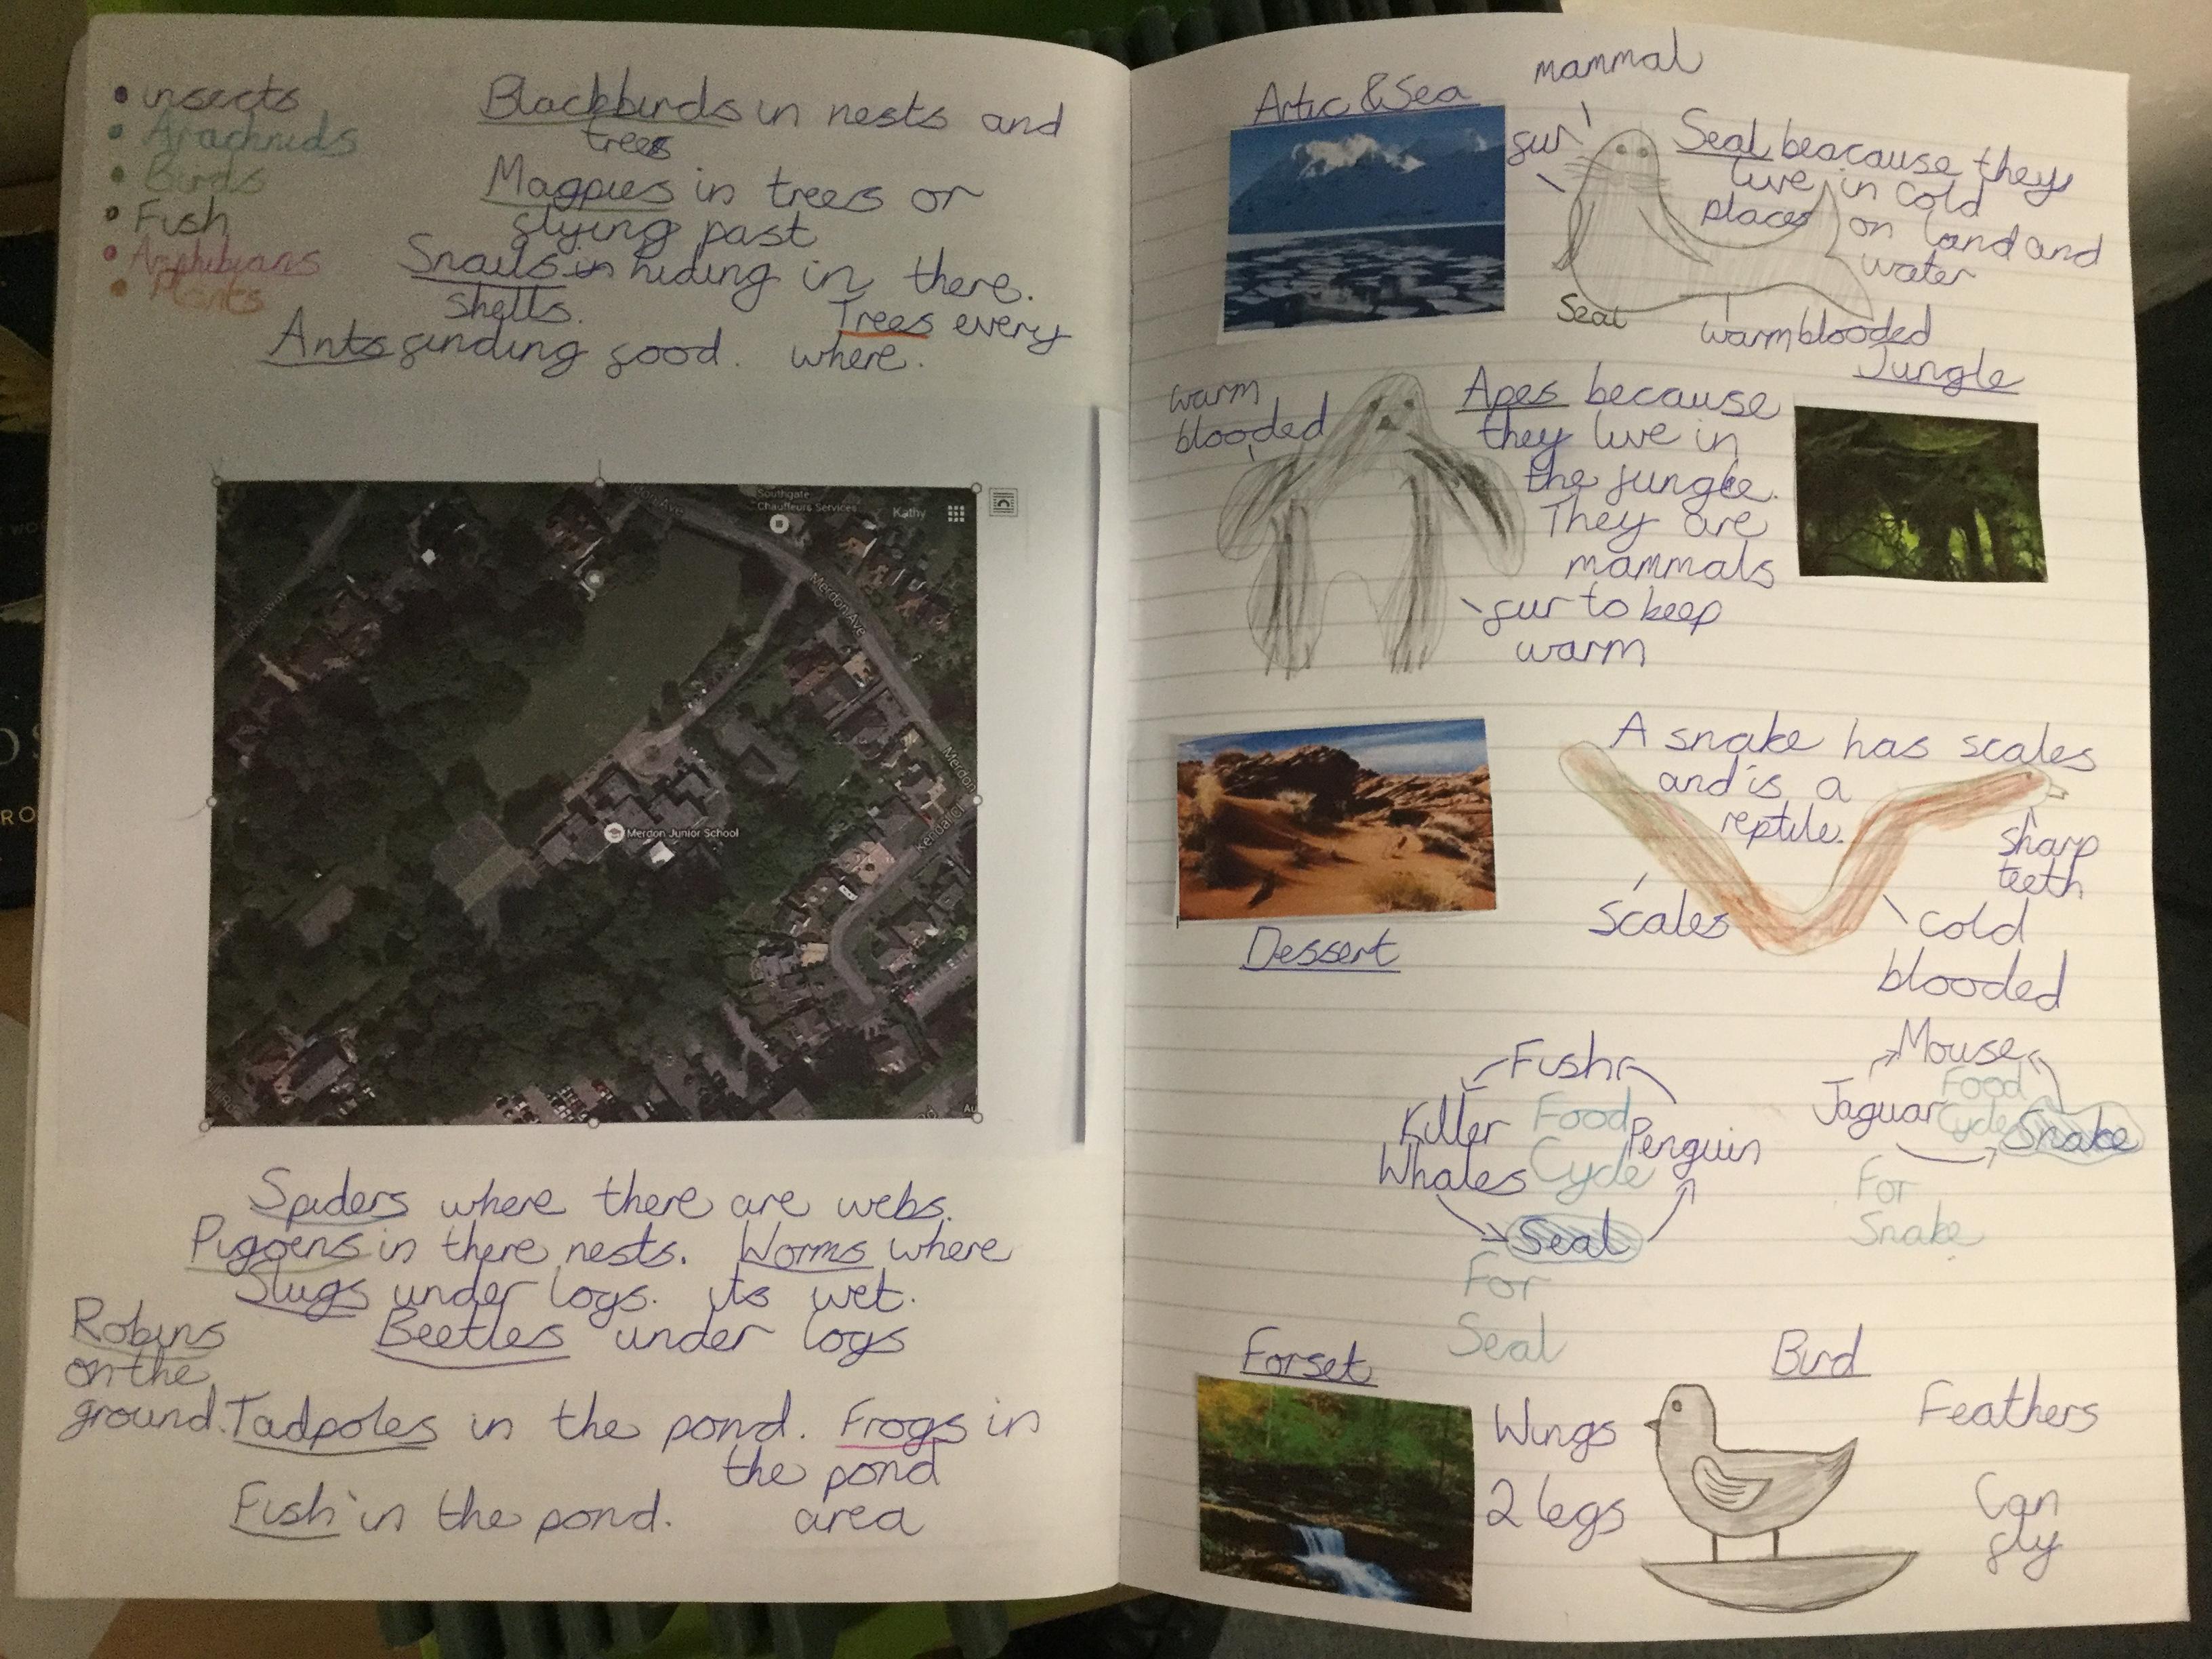 insects
Arachnids
Birds
Fish
Amphibians
Plants
Blackbirds in nests and
trees
Magpies in trees or
flying past
Snails in hiding in there.
shells.
Trees every
where.
Ants finding food.
Southgate
Chauffeurs Services
Kathy
Merdon Ave
Kingsway
Merdon
Kendal Cl
Merdon Junior School
Spiders where there are webs.
Pigoens in there nests. Worms where
Slugs under logs. its wet.
Robins
on the
ground.
Beetles under logs
Tadpoles in the pond. Frogs in
the pond
area
Fish in the pond.
Artic & Sea
mammal
fur
Seal beacause they
live in cold
places on land and
water
Seal
warmblooded
Jungle
warm
blooded
Apes because
they live in
the jungle.
They are
mammals
fur to keep
warm
A snake has scales
and is a
reptile.
sharp
teeth
Scales
cold
blooded
Dessert
Fish
Killer
Whales
Food
Cycle
Penguin
Seal
For
Seal
Mouse
Jaguar
Food
Cycle
Snake
For
Snake
Forset
Bird
Wings
2 legs
Feathers
Can
fly